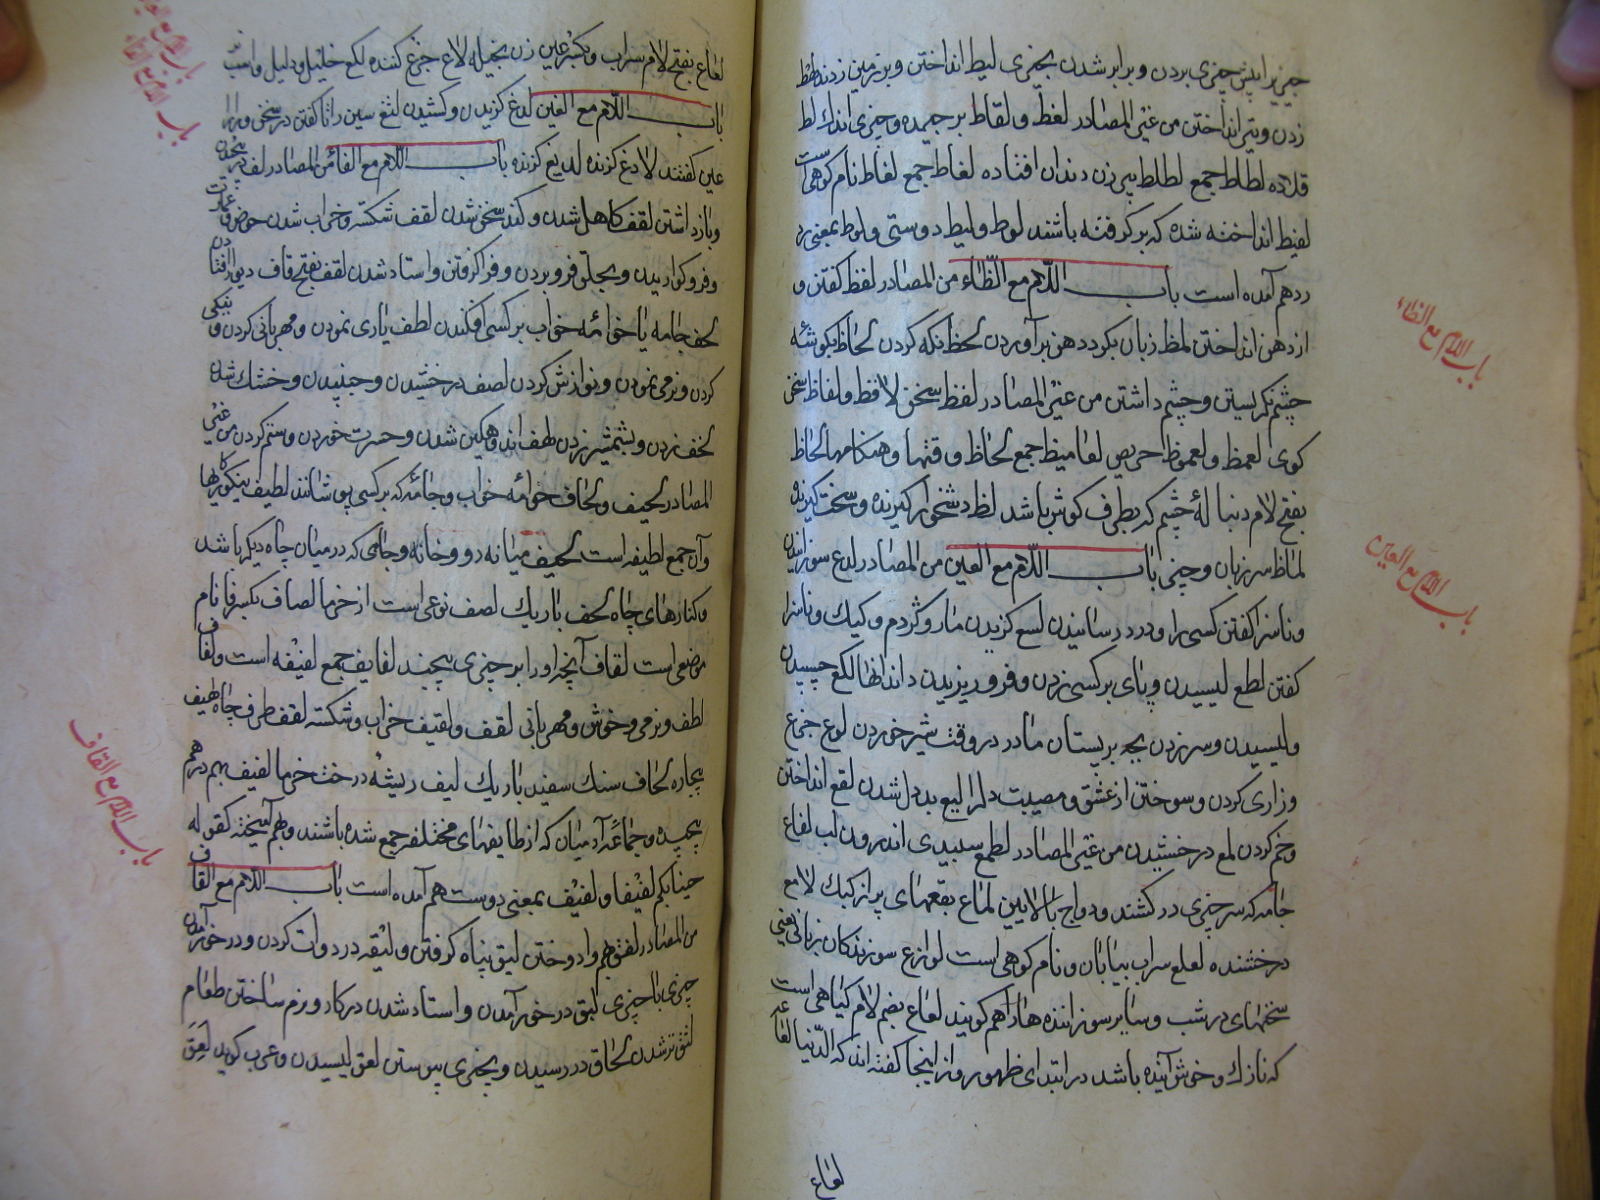 چیزی را پیش چیزی بردن و برابر شدن بچیزی لیط انداختن و بر زمین زدن
زدن و تیر انداختن من غیر المصادر لغط و لقاط برچیده و چیزی اندک لط
قلاده لطاط جمع لطلط پیرزن دندان افتاده لغاط جمع لغاط نام کوهی است
لقیط انداخته شده که برگرفته باشند لوط و لیط دوستی و لوط بمعنی رد
رد هم آمده است باب اللام مع الظاء من المصادر لفظ کفتن و
از دهن انداختن لمظ زبان بکرد دهن برآوردن لحظ نکه کردن لحاظ بکوشهٔ
چشم نکریستن و چشم داشتن من غیر المصادر لفظ سخن لافظ و لفاظ سخن
کوی لعمظ و لعموظ حریص لعامیظ جمع لحاظ وقتها و هنکامها لحاظ
بفتح لام دنبالهٔ چشم که بطرف کوش باشد لظ دشخوار کیرنده و سخت کیرنده
لماظ سر زبان و چیزی باب اللام مع العین من المصادر لدع سوزانیدن
و ناسزا کفتن کسی را و درد رسانیدن لسع کزیدن مار و کژدم و کیک و ناسزا
کفتن لطع لیسیدن و پای بر کسی زدن و فرو ریزیدن دندانها لکع چسپیدن
و لیسیدن و سر زدن بچه بر پستان مادر در وقت شیر خوردن لوع جزع
و زاری کردن و سوختن از عشق و مصیبت دل لیع بددل شدن لقع انداختن
و خم کردن لمع درخشیدن من غیر المصادر لطع سپیدی اندرون لب لفاع
جامه که سر چیزی در کشند و دواج بالایین لماع بقعهای پر از کیاه لامع
درخشنده لعلع سراب بیابان و نام کوهی است لوازع سوزندکان بزبانی یعنی
سخنهای درشت و سایر سوزاننده‌ها را هم کویند لعاع بضم لام کیاهی است
که نازک و خوش آینده باشد در ابتدای ظهور و از اینجا کفته اند که الدنیا لعاعه
لعاع
باب اللام مع الظاء
باب اللام مع العین
لعاع بفتح لام سراب و بکسر عین زن بخیله لاع جزع کننده لکع خلیل و دلیل و است
باب اللام مع الغین لدغ کزیدن و کشیدن لثغ سین را ثا کفتن در سخن و را را
غین کفتند لادغ کزنده لدیغ کزنده باب اللام مع الفا من المصادر لف در پیچیدن
و بازداشتن لقف کاهل شدن و کند سخن شدن لقف شکسته و خراب شدن حوض و عمارت
و فرو کواریدن و بحلق فرو بردن و فرا کرفتن و استاد شدن لقف بفتح قاف دیوار افتادن
لحف جامه یا خوابه خواب بر کسی افکندن لطف یاری نمودن و مهربانی کردن و نیکی
کردن و نرمی نمودن و نوازش کردن لصف درخشیدن و جنبیدن و خشک شدن
لخف زدن و بشمشیر زدن لهف اندوهکین شدن و حسرت خوردن و ستم کردن من غیر
المصادر لحیف و لحاف خوابه خواب و جامه که بر کسی پوشانند لطیف نیکوکارها
و آن جمع لطیفه است لحیف میانه دو خانه و جامی که در میان چاه دیگر باشد
و کنارهای چاه لحف باریک لصف نوعی است از خرما لصاف بکسر فا نام
موضعی است لفاف آنچه او را بر چیزی پیچند لفایف جمع لفیفه است و لفاف
لطف و نرمی و خوش و مهربانی لقف و لقیف خراب و شکسته لقف طرف چاه لهیف
بیچاره لخاف سنک سفید باریک لیف ریشهٔ درخت خرما لفیف بهم درهم
پیچیده و جماعة آدمیان که از طایفهای مختلفه جمع شده باشند و بهم آمیخته کقوله
جینا بکم لفیفا و لفیف بمعنی دوست هم آمده است باب اللام مع القاف
من المصادر لفق بهم وا دوختن لیق پناه کرفتن و لیقه در دوات کردن و در خور آمدن
چیزی با چیزی لبق در خور آمدن و استاد شدن در کار و نرم ساختن طعام
لثق تر شدن لحاق در رسیدن و بچیزی پیوستن لعق لیسیدن و عرب کوید لعق
باب اللام مع الغین
باب اللام مع القاف